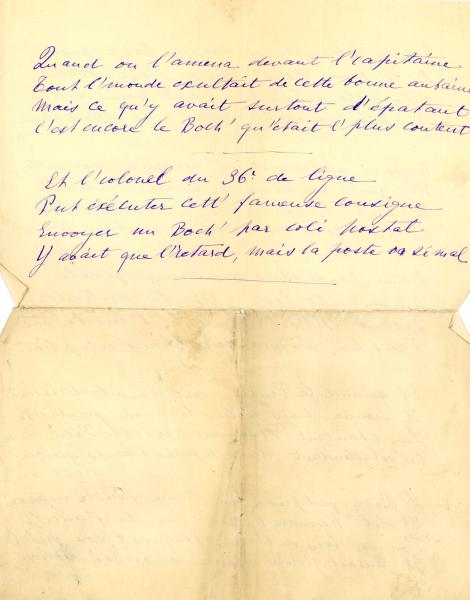 Quand on l'amena devant l'capitaine
Tout l'monde exultait de cette bonne aubaine
Mais ce qu'y avait surtout d'épatant
C'est encore le Boch' qu'était l'plus content
Et l'colonel du 36e de ligne
Put exécuter cett' fameuse consigne
Envoyer un Boch' par coli postal
Y avait que l'retard, mais la poste va si mal